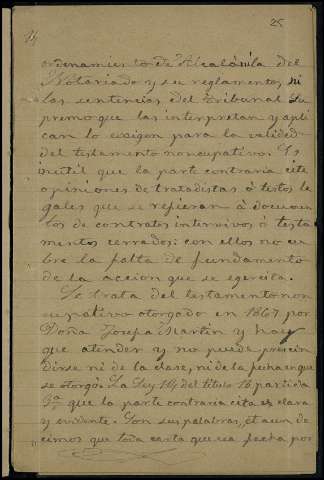 25
14
ordenamiento de Alcalá, ni la del
Notariado y su reglamento, ni
las sentencias del Tribunal Su
premo que las interpretan y apli
can lo exigen para la validez
del testamento noncupativo. Es
inútil que la parte contraria cite
opiniones de tratadistas ó textos le
gales que se refieran á documen
tos de contratos intervivos ó testa
mentos cerrados: con ellos no cu
bre la falta de fundamento
de la accion que se ejercita.
Se trata del testamento non
cupativo otorgado en 1867 por
Doña Josefa Martin y hay
que atender y no puede prescin
dirse ni de la clase, ni de la fecha en que
se otorgó. La Ley 114 del titulo 18 partida
3ª que la parte contraria cita es clara
y evidente. Son sus palabras, et aun de
cimos que toda carta que sea fecha por